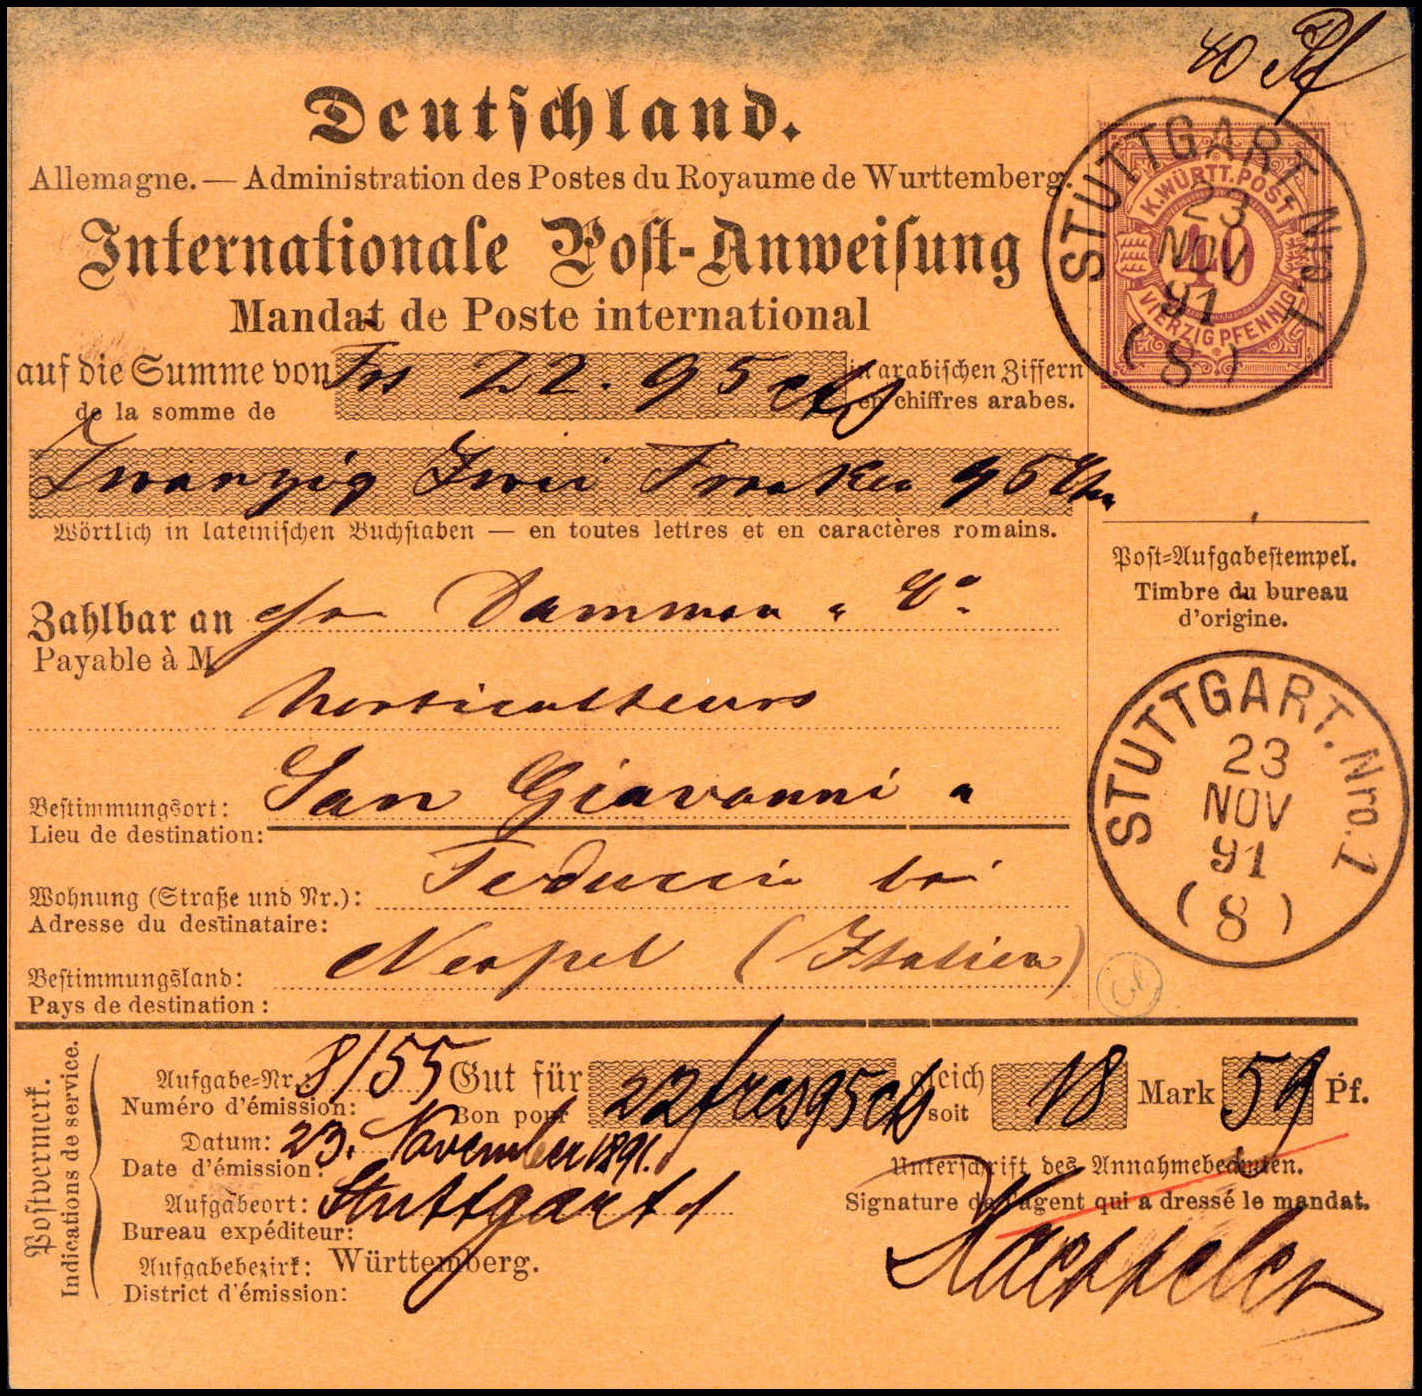 40 Pf
Deutschland.
Allemagne. — Administration des Postes du Royaume de Wurttemberg.
Internationale Post-Anweisung
Mandat de Poste international
STUTTGART. Nro. 1
23
NOV
91
(8)
K. WÜRTT. POST
40
VIERZIG PFENNIG
auf die Summe von Frs 22. 95 cts in arabischen Ziffern
de la somme de en chiffres arabes.
Zwanzig Zwei Franken 95
Wörtlich in lateinischen Buchstaben — en toutes lettres et en caractères romains.
Post-Aufgabestempel.
Timbre du bureau
d'origine.
Zahlbar an Damman & Co.
Payable à M
horticulteurs
STUTTGART. Nro. 1
23
NOV
91
(8)
Bestimmungsort: San Giovanni a
Lieu de destination:
Wohnung (Straße und Nr.): Teduccio bei
Adresse du destinataire:
Bestimmungsland: Neapel (Italien)
Pays de destination:
Postvermerk.
Indications de service.
Aufgabe-Nr. 8/55 Gut für 22 frcs 95 cts gleich 18 Mark 59 Pf.
Numéro d'émission: Bon pour soit
Datum: 23. November 1891.
Date d'émission:
Unterschrift des Annahmebeamten.
Aufgabeort: Stuttgart 1
Signature de l'agent qui a dressé le mandat.
Bureau expéditeur:
Kaeppeler
Aufgabebezirk: Württemberg.
District d'émission: